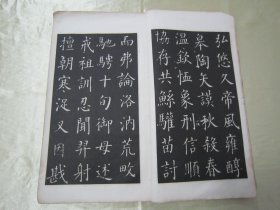 弘悠久帝風雍醇
皋陶矢謨秋殺春
溫欽恤象刑信順
協存共鯀驩苗討
而弗論洛汭荒畋
馳騁十旬御母述
戒祖訓忍聞羿射
擅朝寒浞又因戕